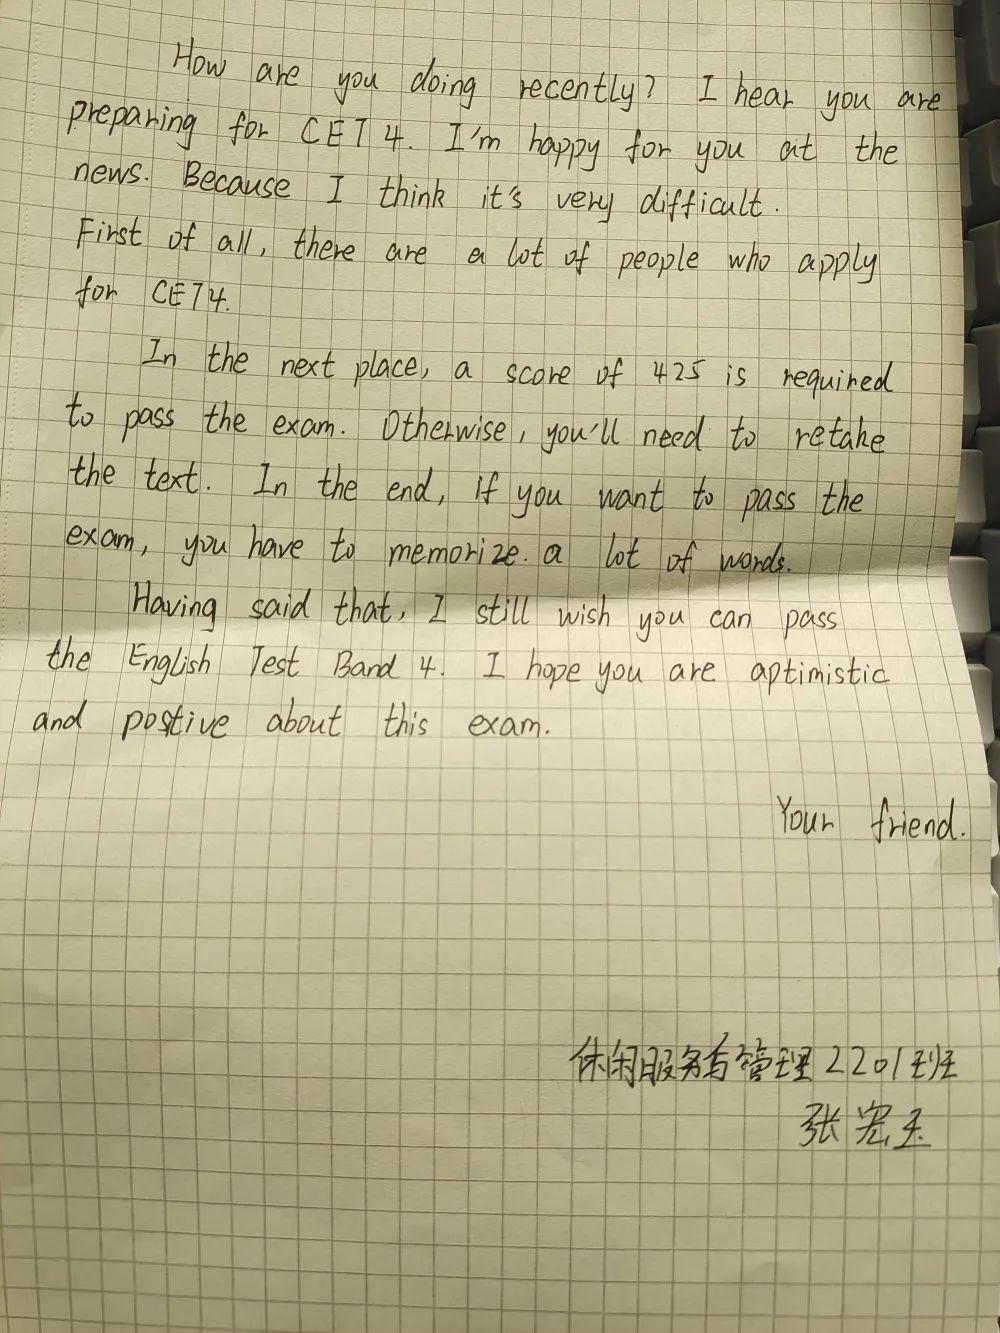 How are you doing recently? I hear you are
preparing for CET4. I'm happy for you at the
news. Because I think it's very difficult.
First of all, there are a lot of people who apply
for CET4.
In the next place, a score of 425 is required
to pass the exam. Otherwise, you'll need to retake
the text. In the end, if you want to pass the
exam, you have to memorize. a lot of words.
Having said that, I still wish you can pass
the English Test Band 4. I hope you are aptimistic
and postive about this exam.
Your friend.
休闲服务与管理2201班
张宏玉